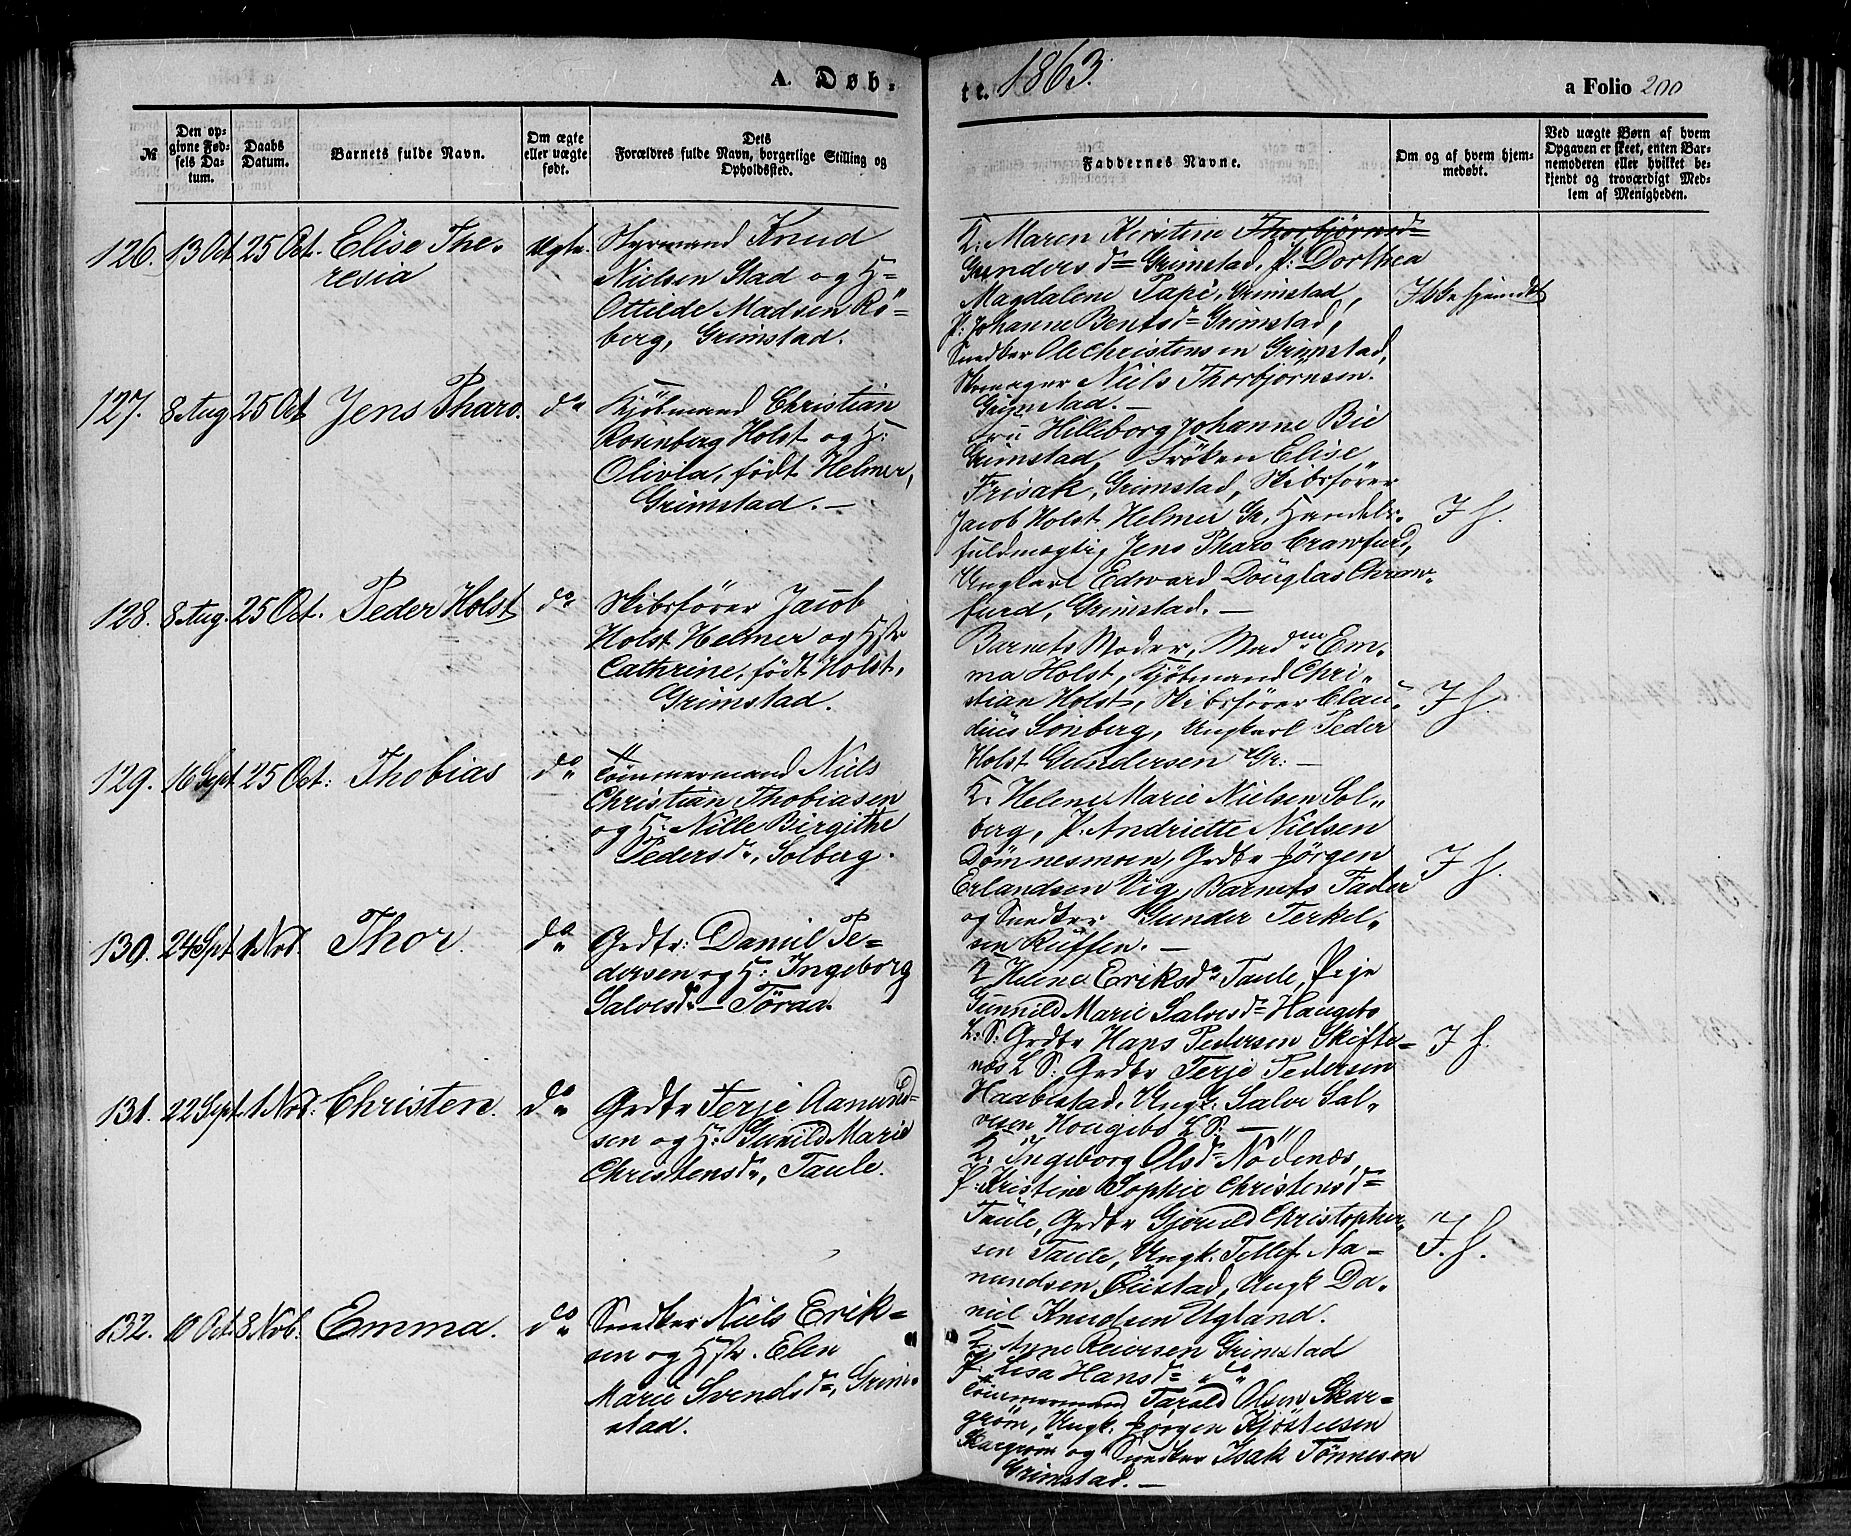 A. Døb-
te. 1863.
a Folio 200
№
Den op-
givne Fød-
sels Da-
tum.
Daabs
Datum.
Barnets fulde Navn.
Om ægte
eller uægte
født.
Dets
Forældres fulde Navn, borgerlige Stilling og
Opholdssted.
Faddernes Navne.
Om og af hvem hjem-
medøbt.
Ved uægte Børn af hvem
Opgaven er skeet, enten Bar-
nemoderen eller hvilket be-
kjendt og troværdigt Med-
lem af Menigheden.
126. 13 Oct. 25 Oct. Elise The-
resia
Ægte
Styrmand Knud
Nielsen Stad og H=
Ottilde Madsen Rö=
berg, Grimstad.
K: Maren Kirstine Thorbjörnsd=
Gundersd= Grimstad, P: Dorthea
Magdalene Pape, Grimstad,
P: Johanne Bentsd= Grimstad,
Snedker Ole Christensen Grimstad,
Skomager Niels Thorbjornsen
Grimstad. —
Ikke hjemdt
127. 8 Aug 25 Oct Jens Pharo. do
Kjöbmand Christian
Rosenberg Holst og H:
Olivia, födt Helmer,
Grimstad. —
Fru Hilleborg Johanne Bie
Grimstad, Fröken Elise
Frisak, Grimstad, Skibsförer
Jacob Holst Helmer Gr, Handels-
fuldmægtig Jens Pharo Crawfurd,
Ungkarl Edward Douglas Chraw-
furd, Grimstad. —
I H.
128. 8 Aug. 25 Oct. Peder Holst do
Skibsförer Jacob
Holst Helmer og Hstr
Cathrine, födt Holst,
Grimstad.
Barnets Moder, Madme Em-
ma Holst, Kjöbmand Chri-
stian Holst, Skibsförer Clau-
dius Sonberg, Ungkarl Peder
Holst Gundersen Gr: —
I H.
129. 16 Sept 25 Oct: Thobias do
Tömmermand Niels
Christian Thobiasen
og H: Nille Birgithe
Pedersd, Solberg.
K: Helene Marie Nielsen Sol-
berg, P. Andriette Nielsen
Dömnesmoen, Grdbr Jörgen
Erlandsen Vig, Barnets Fader
og Snedker Gunder Terkel-
sen Ruffen. —
I H.
130. 24 Sept 1 Nov. Thor. do
Grdbr: Daniel Pe=
dersen og H: Ingeborg
Salvesd. — Töraa.
K Helene Eriksd Taule, Pige
Gunnild Marie Salvesd= Haugebo
L: S: Grdbr Hans Pedersen Skifte=
næs L S: Grdbr Terje Pedersen
Haabestad, Ungk: Salve Sal-
vesen Hougebo L S: —
I H.
131. 22 Sept. 1 Nov: Christen. do
Grdbr Terje Aamund=
sen og H: Gunild Marie
Christensd, Taule.
K: Ingeborg Olsd= Nödenæs,
P: Kristine Sophie Christensd=
Taule, Grdbr Gjeruld Christopher-
sen Taule, Ungk. Tellef Aa=
mundsen Öiestad, Ungk Da-
niel Knudsen Ugland.
I. H.
132. 10 Oct. 8 Nob. Emma. do
Snedker Niels Erik=
sen og Hstr. Elen
Marie Svendsd=, Grim-
stad.
K: Anne Reiersen Grimstad
P: Lisa Hansd= do
Tömmermand Tarald Olsen Skar=
gröm, Ungk. Jörgen Kjöstelsen
Skargrom og Snedker Isak Tönnesen
Grimstad. —